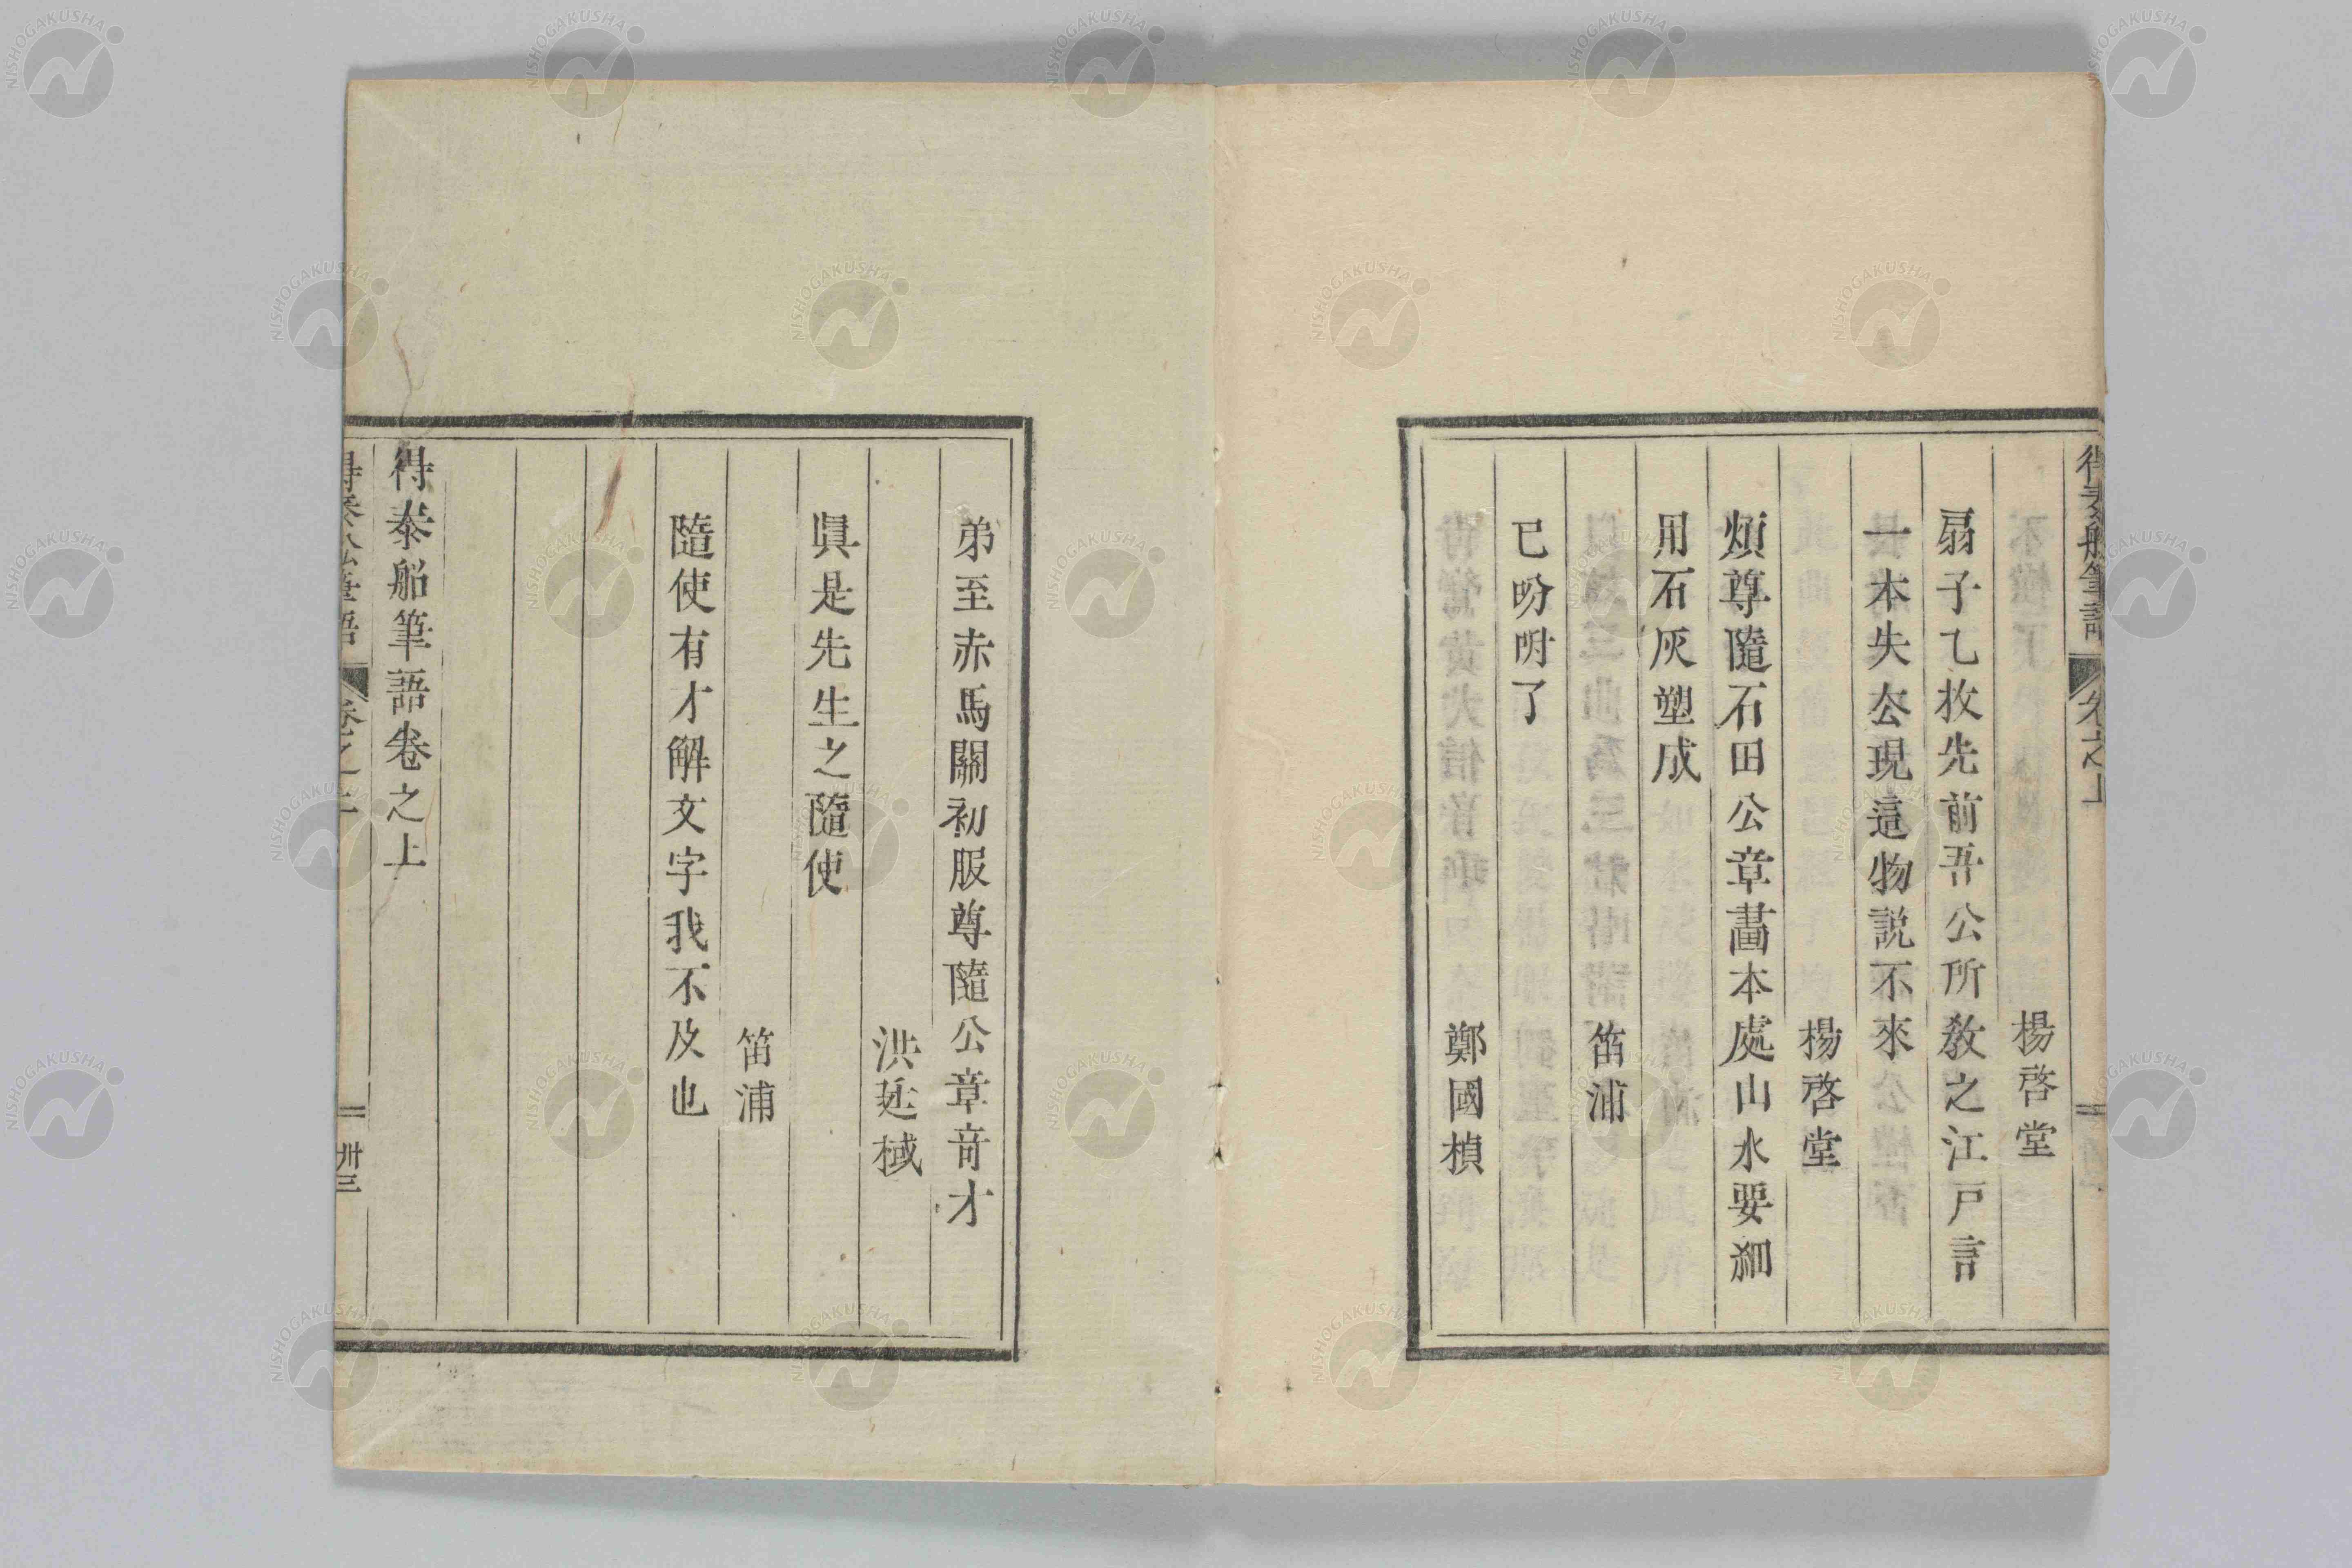 得泰船筆語
卷之上
楊啓堂
扇子乙枚先前吾公所教之江戸言
一本失厺現這物説不來
楊啓堂
煩尊隨石田公章畵本處山水要細
用石灰塑成
笛浦
已吩咐了
鄭國楨
弟至赤馬關初服尊隨公章竒才
洪廷棫
眞是先生之隨使
笛浦
隨使有才解文字我不及也
得泰船筆語卷之上
得泰船筆語
卷之上
卅三
NISHOGAKUSHA